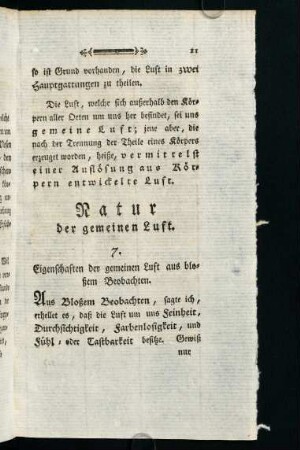 21
so ist Grund vorhanden, die Luft in zwei
Hauptgattungen zu theilen.
Die Luft, welche sich außerhalb den Kör-
pern aller Orten um uns her befindet, sei uns
gemeine Luft; jene aber, die
nach der Trennung der Theile eines Körpers
erzeuget worden, heiße, vermittelst
einer Auslösung aus Kör-
pern entwickelte Luft.
Natur
der gemeinen Luft.
7.
Eigenschaften der gemeinen Luft aus blo-
ßem Beobachten.
Aus Bloßem Beobachten, sagte ich,
erhellet es, daß die Luft um uns Feinheit,
Durchsichtigkeit, Farbenlosigkeit, und
Fühl- oder Tastbarkeit besitze. Gewiß
nur